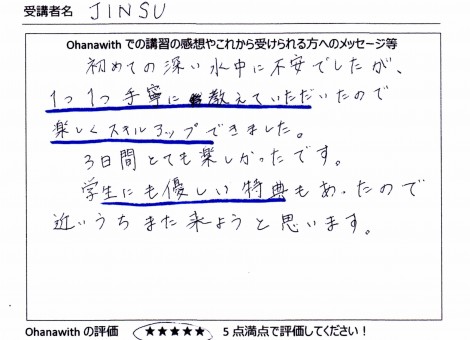 受講者名 JINSU
Ohanawith での講習の感想やこれから受けられる方へのメッセージ等
初めての深い水中に不安でしたが、
1つ1つ手寧に教えていただいたので
楽しくスキルアップできました。
3日間とても楽しかったです。
学生にも優しい特典もあったので
近いうちまた来ようと思います。
Ohanawith の評価 ★★★★★ 5点満点で評価してください！